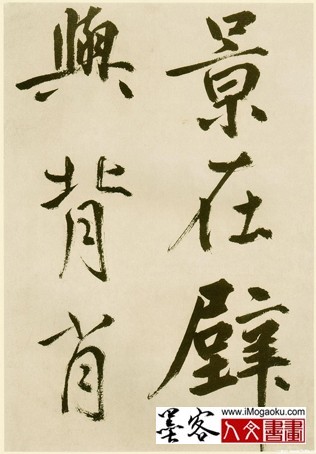 景在壁
與背肖
墨客
www.iMogaoku.com
人文書畫